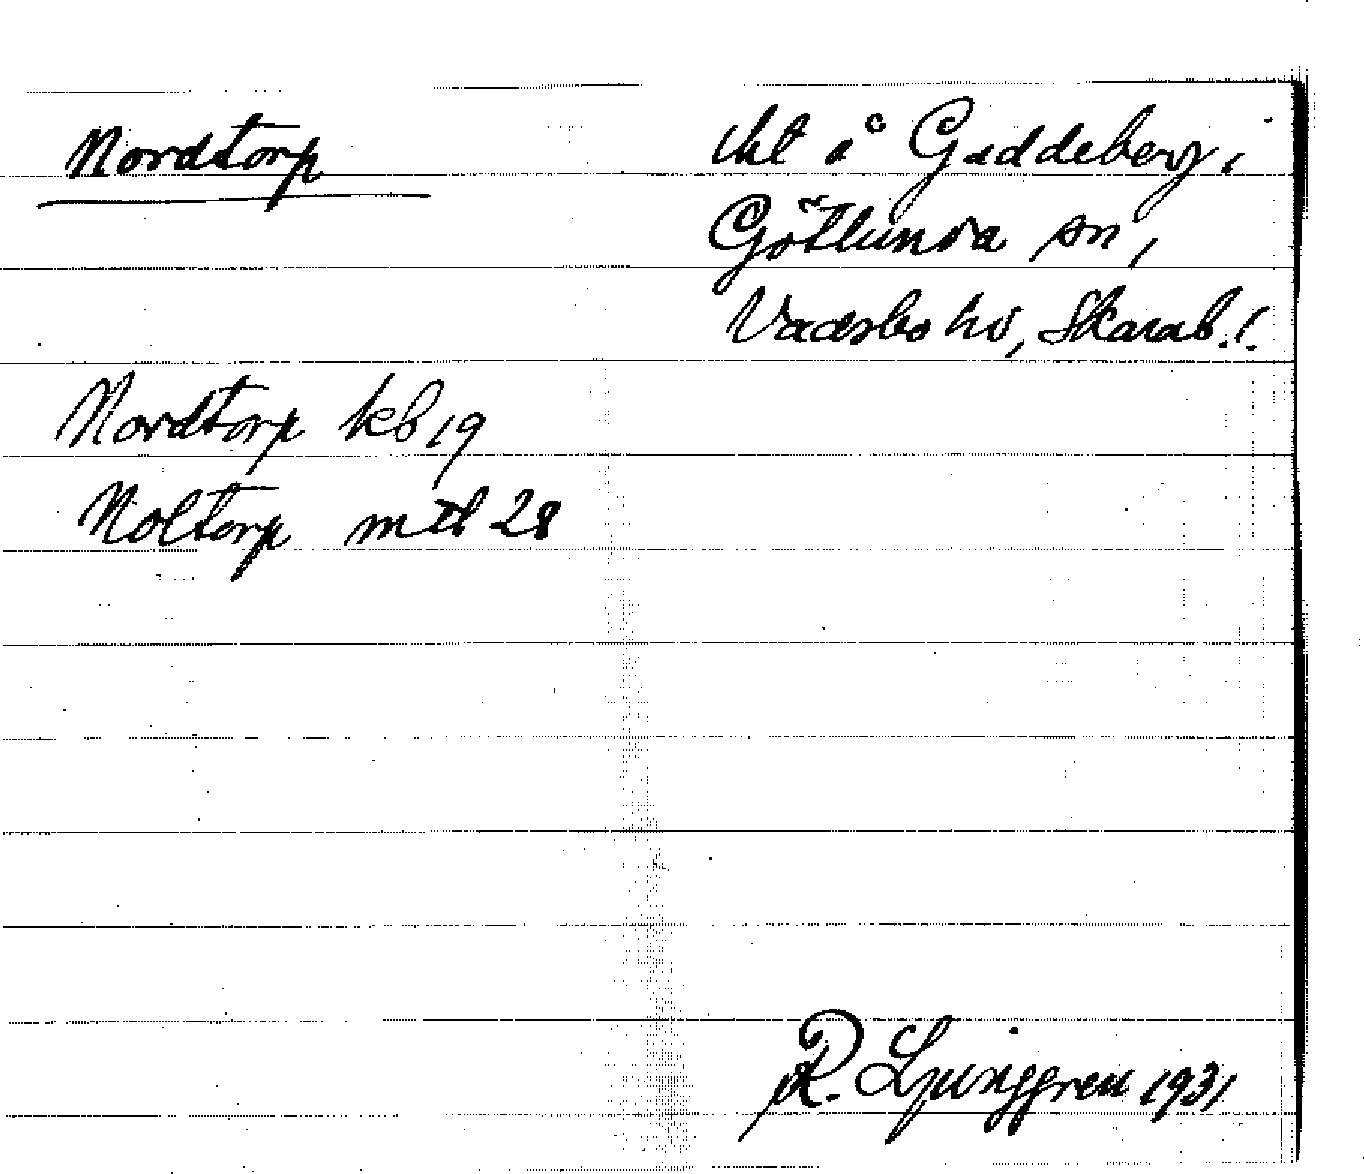 Nordtorp
tht å Gaddeberg,
Götlunda sn,
Vadsbo hd, Skarab. l.
Nordtorp kb 19
Noltorp mtl 28
R. Ljunggren 1931